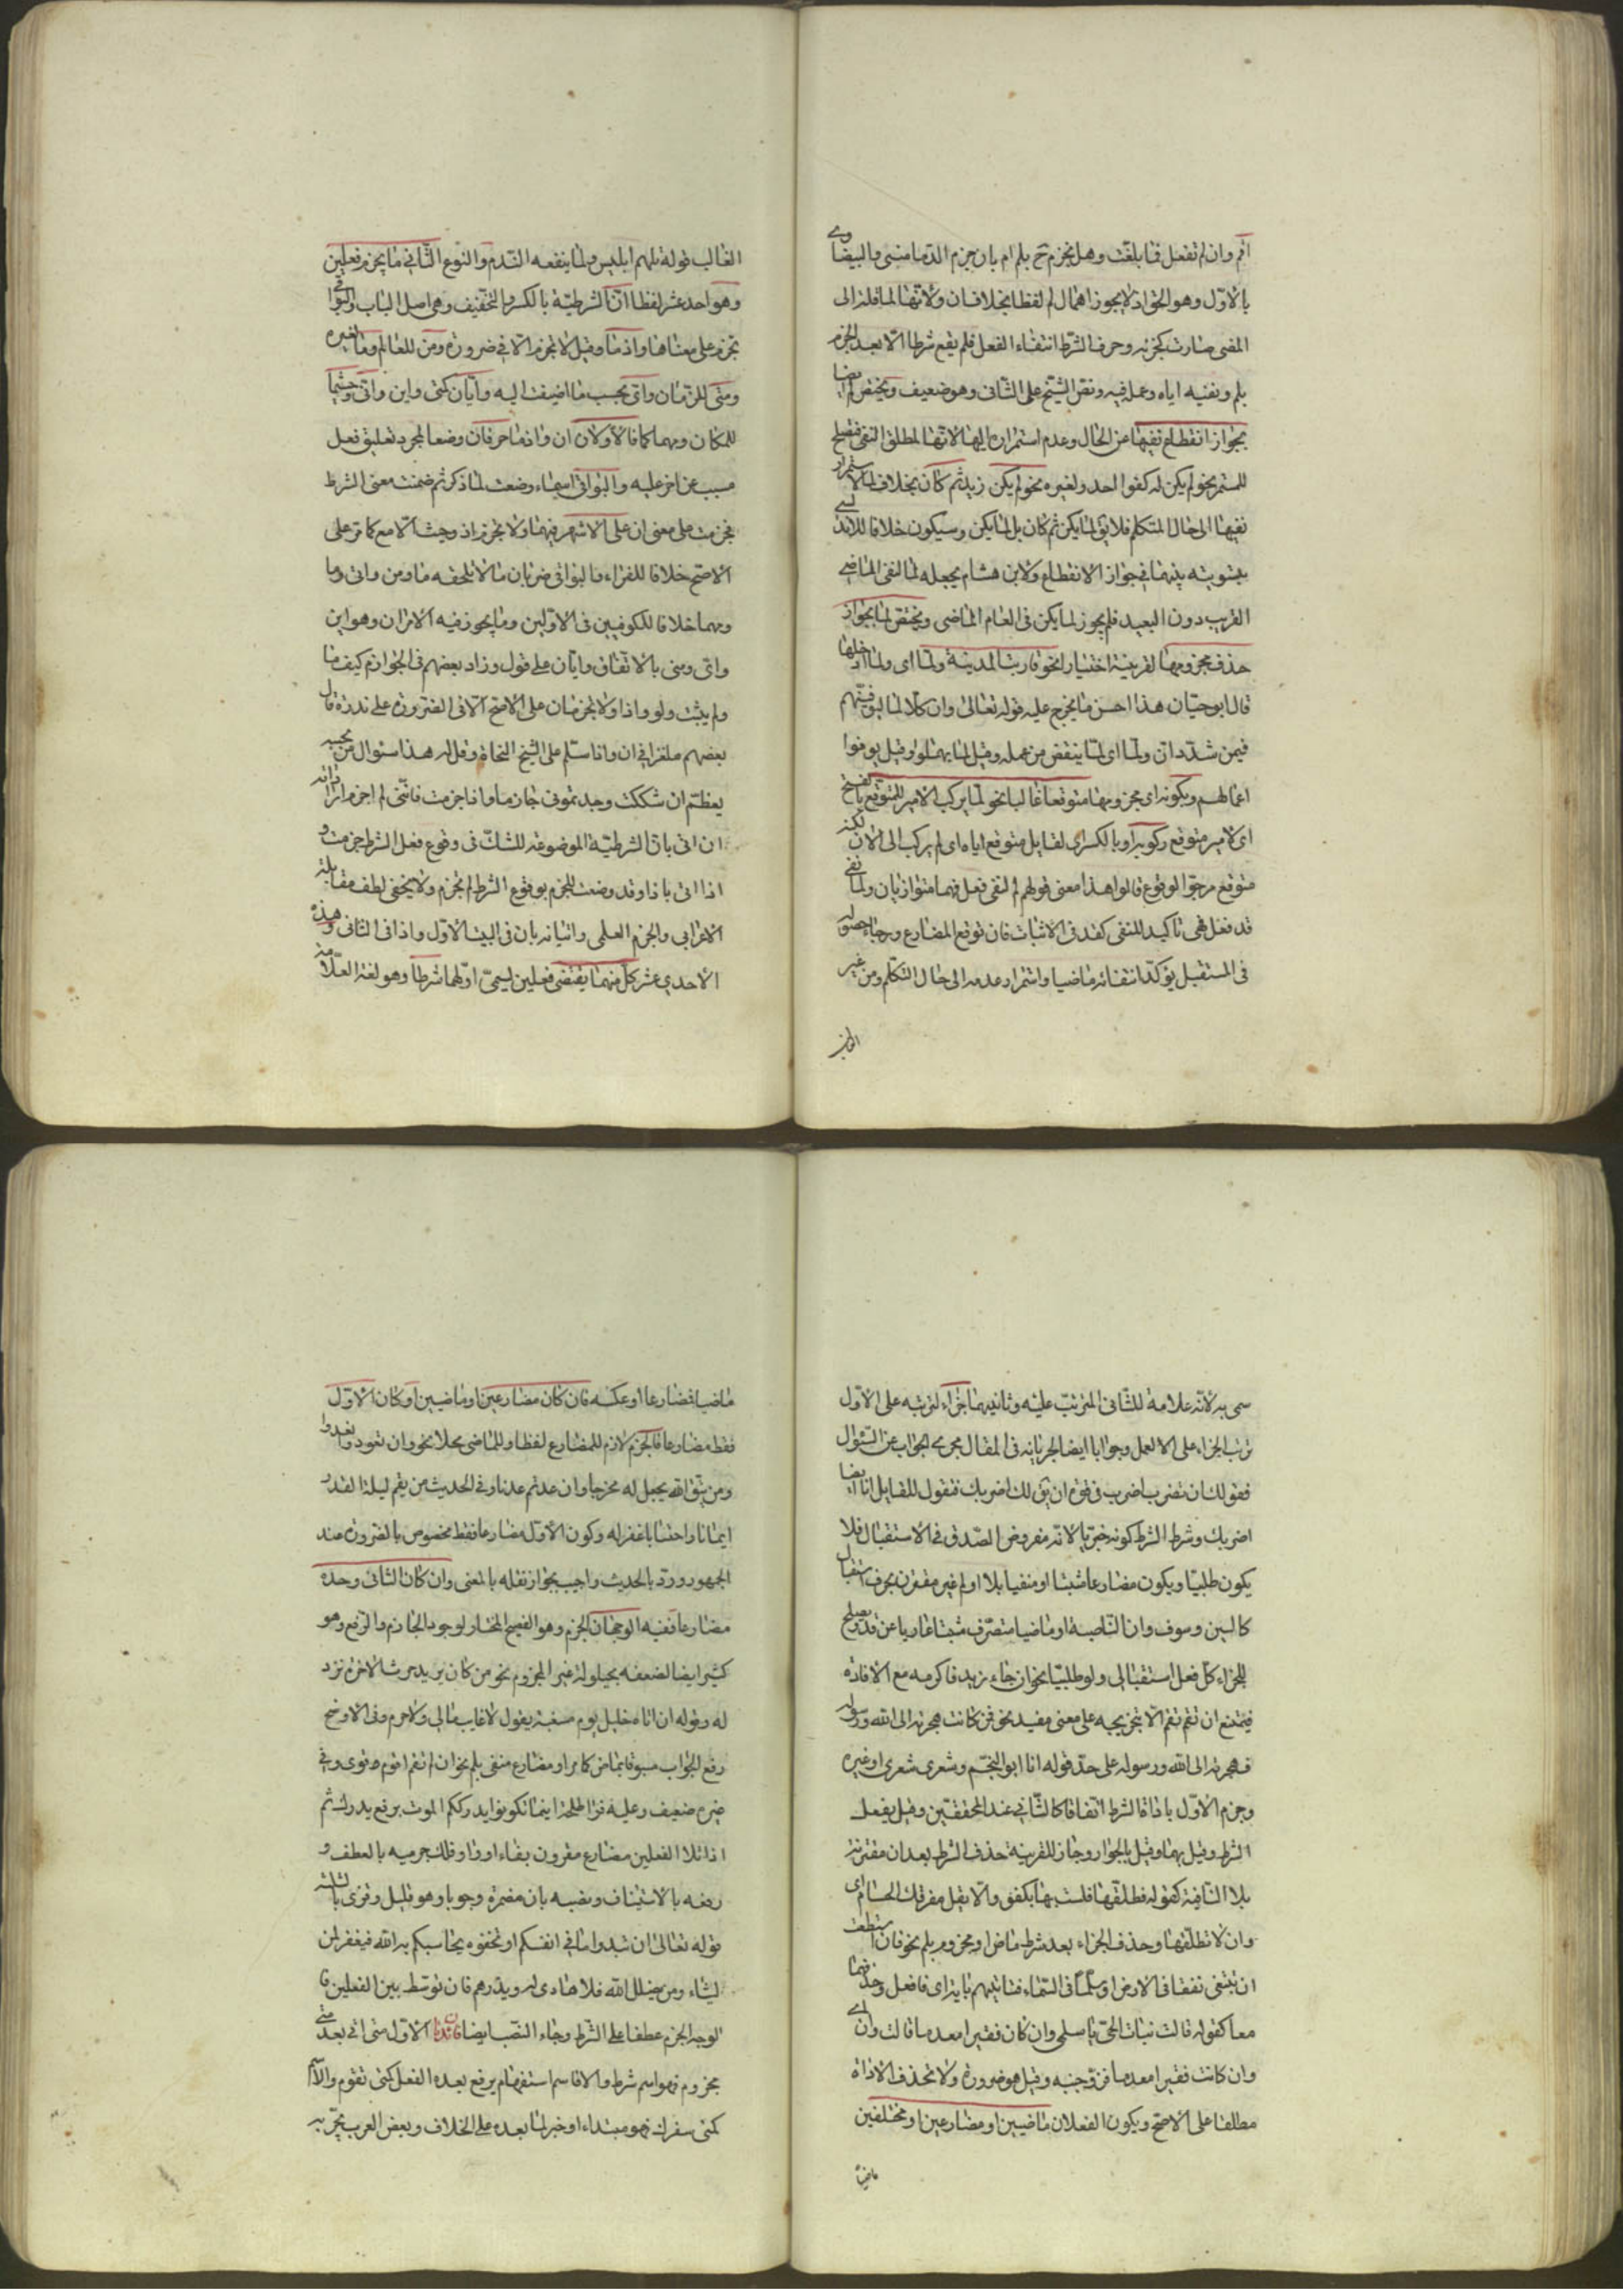 اقم وان لم تفعل فما بلغت وهل يجزم ح بلم ام بان جزم الدمامينى والبيضاوى
بالاول وهو الحق اذ لا يجوز اهمال لم لفظا بخلاف ان ولانها لما قلبته الى
المضى صارت كجزئه وحرف الشرط انتفاء الفعل فلم يقع شرطا الا بعد الجزم
بلم ونفيه اياه وعمله فيه ونص الشيخ على الثانى وهو ضعيف ويختص لم ايضا
بجواز انقطاع نفيها عن الحال وعدم استمراره اليها لانها لمطلق النفى فتصلح
للمستمر نحو لم يكن له كفوا احد ولغيره نحو لم يكن زيد ثم كان بخلاف لما لاستمرار
نفيها الى حال المتكلم فلا يق لما يكن ثم كان بل لما يكن وسيكون خلافا للاندلسى
بتسويته بينهما فى جواز الانقطاع ولابن هشام بجعله لما لنفى الماضى
القريب دون البعيد فلم يجوز لما يكن فى العام الماضى ويختص لما بجواز
حذف مجزومها لقرينة اختيارا نحو قاربت المدينة ولما اى ولما ادخلها
قال ابو حيان هذا احسن ما يخرج عليه قوله تعالى وان كلا لما ليوفينهم
فيمن شدد ان ولما اى لما ينقص من عمله وقيل لما يهملوا وقيل يوفوا
اعمالهم وبكونه اى مجزومها متوقعا غالبا نحو لما يركب الامير للمتوقع بالفتح
اى لامير متوقع ركوبه او بالكسر اى لقايل متوقع اياه اى لم يركب الى الان لكنه
متوقع مرجو الوقوع قالوا هذا معنى قولهم لم لنفى فعل فهما متوازيان ولما نفى
قد فعل فهى تاكيد للنفى كقد فى الاثبات فان توقع المضارع ورجاء حصوله
فى المستقبل يؤكد انتفائه ماضيا واستمرار عدمه الى حال التكلم ومن غير
الغالب
الغالب قوله بلهم ابليس ولما ينفعه الندم والنوع الثانى ما يجزم فعلين
وهو احد عشر لفظا ان الشرطية بالكسر والتخفيف وهى اصل الباب والبواقى
تجزم على معناها واذما وقيل لا تجزم الا فى ضرورة ومن للعالم وما لغيره
ومتى للزمان واى بحسب ما اضيفت اليه وايان كمتى واين وانى وحيثما
للمكان ومهما كما فالاولان ان واذما حرفان وضعا لمجرد تعليق فعل
مسبب عن اخر عليه والبواقى اسماء وضعت لما ذكر ثم ضمنت معنى الشرط
فجزمت على معنى ان على الاشهر فيهما ولا تجزم اذ وحيث الا مع ما كما مر على
الاصح خلافا للفراء والبواقى ضربان ما لا تلحقه ما ومن وانى وما
ومهما خلافا للكوفيين فى الاولين وما يجوز فيه الامران وهو اين
واى ومتى بالاتفاق وايان على قول وزاد بعضهم فى الجوازم كيف ما
ولم يثبت ولو واذا ولا تجزمان على الاصح الا فى الضرورة على ندرة قال
بعضهم ملغزا فى ان واذا سلم على الشيخ النحاة وقل له هذا سؤال من يجبه
يعظم ان شككت وجدتمونى جازما واذا جزمت فاننى لم اجزم اراد انه
ان اتى بان الشرطية الموضوعة للشك فى وقوع فعل الشرط جزمت و
اذا اتى باذا وقد وضعت للجزم بوقوع الشرط لم تجزم ولا يخفى لطف مقابلة
الاعرابى والجزم العلمى واتيانه بان فى البيت الاول واذا فى الثانى وهذه
الاحدى عشر كل منهما يقتضى فعلين ليسمى اولهما شرطا وهو لغة العلامة
سمى به لانه علامة للثانى المترتب عليه وثانيهما جزاء لترتبه على الاول
ترتب الجزاء على الا لعمل وجوابا ايضا لجريانه فى المقال مجرى الجواب عن السؤال
فقولك ان تضرب اضرب فى قوة ان يق لك اضربك فتقول للقايل انا ايضا
اضربك وشرط الشرط كونه خبريا لانه مفروض الصدق فى الاستقبال فلا
يكون طلبيا ويكون مضارعا مثبتا او منفيا بلا او لم غير مقترن بحرف استقبال
كالسين وسوف وان الناصبة او ماضيا متصرف مثبتا عاريا عن قد ويصلح
للجزاء كل فعل استقبالى ولو طلبيا نحو ان جاء زيد فاكرمه مع الافادة
فيمتنع ان تقم تقم الا بتخريجه على معنى مفيد نحو فمن كانت هجرته الى الله ورسوله
فهجرته الى الله ورسوله على حد قوله انا ابو النجم وشعرى شعرى او غيره
وجزم الاول باداة الشرط اتفاقا كالثانى عند المحققين وقيل بفعل
الشرط وقيل بهما وقيل بالجوار وجاز للقرينة حذف الشرط بعد ان مقترنة
بلا النافية كقوله فطلقها فلست بها بكفق والا يعل مفرقك الحسام اى
وان لا تطلقها وحذف الجزاء بعد شرط ماض او مجزوم بلم نحو فان استطعت
ان تبتغى نفقا فى الارض او سلما فى السماء فتاتيهم باية اى فافعل وحذفهما
معا كقوله قالت بنات الحى يا سلمى وان كان فقيرا معدما قالت وان اى
وان كانت فقيرا معدما فزوجنيه وقيل هو ضرورة ولا تحذف الاداة
مطلقا على الاصح ويكون الفعلان ماضيين او مضارعين او مختلفين
ماضيا
ماضيا فمضارعا او عكسه فان كان مضارعين او ماضيين او كان الاول
فقط مضارعا فالجزم لازم للمضارع لفظا وللماضى محلا نحو وان تعودوا نعد
ومن يتق الله يجعل له مخرجا وان عدتم عدنا وفى الحديث من يقم ليلة القدر
ايمانا واحتسابا غفر له وكون الاول مضارعا فقط مخصوص بالضرورة عند
الجمهور ورد بالحديث واجيب بجواز نقله بالمعنى وان كان الثانى وحده
مضارعا ففيه الوجهان الجزم وهو الفصيح المختار لوجود الجازم والرفع وهو
كثير ايضا لضعفه بحيلولة غير المجزوم نحو من كان يريد حرث الاخرة نزد
له وقوله ان اتاه خليل يوم مسغبة يقول لا غايب مالى ولا حرم وفى الاوضح
رفع الجواب مسبوقا بماض كما مر او مضارع منفى بلم نحو ان لم تقم اقوم قوى وفى
غيره ضعيف وعليه قرا طلحة اينما تكونوا يدرككم الموت برفع يدرك ثم
اذا تلا الفعلين مضارع مقرون بفاء او واو فلك جزمه بالعطف و
رفعه بالاستيناف ونصبه بان مضمرة وجوبا وهو قليل وقرى بالثلثة
قوله تعالى ان تبدوا ما فى انفسكم او تخفوه يحاسبكم به الله فيغفر لمن
يشاء ومن يضلل الله فلا هادى له ويذرهم فان توسط بين الفعلين فا
لوجه الجزم عطفا على الشرط وجاء النصب ايضا فائدتان الاول متى اتى بعد متى
مجزوم فهو اسم شرط والا فاسم استفهام يرفع بعده الفعل كمتى تقوم والاسم
كمتى سفرك فهو مبتداء او خبر لما بعده على الخلاف وبعض العرب يجر به